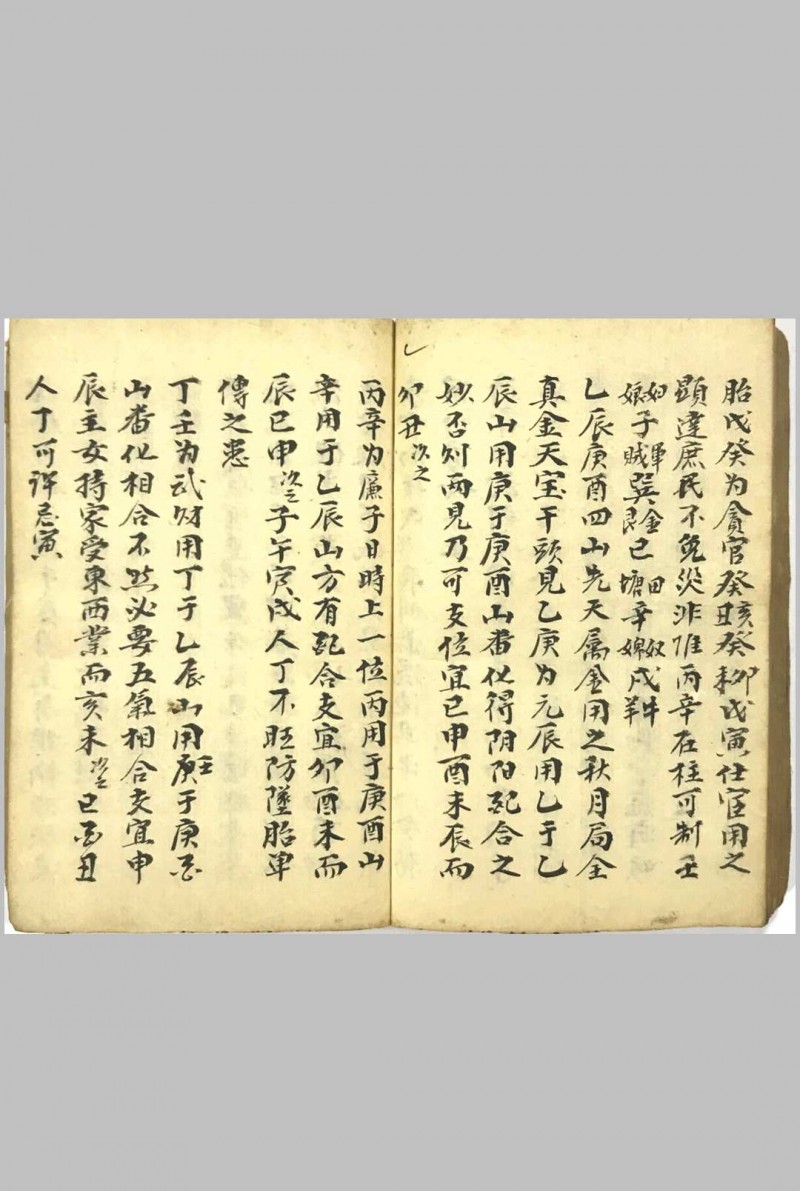 胎戊癸为貪官癸亥癸丑癸未癸卯戊寅仕宦用之
顕達庶民不免災非惟丙辛在柱可制壬
婦娘子軍賊巽金艮巳田塘辛奴婢戌牛羊
乙辰庚酉四山先天属金用之秋月局全
真金天宝干頭見乙庚为元辰用乙于乙
辰山用庚于庚酉山畨化得阴阳配合之
妙否则两見乃可支位宜巳申酉未辰而
卯丑次之
丙辛为廉子日時上一位丙用于庚酉山
辛用于乙辰山方有配合支宜卯酉未而
辰巳申次之子午寅戌人丁不旺防墜胎
傳之患
丁壬为武财用丁于乙辰山用壬于庚酉
山畨化相合不然必要五氣相合支宜申
辰主女持家受東西業而亥未次之巳酉丑
人丁可許忌寅